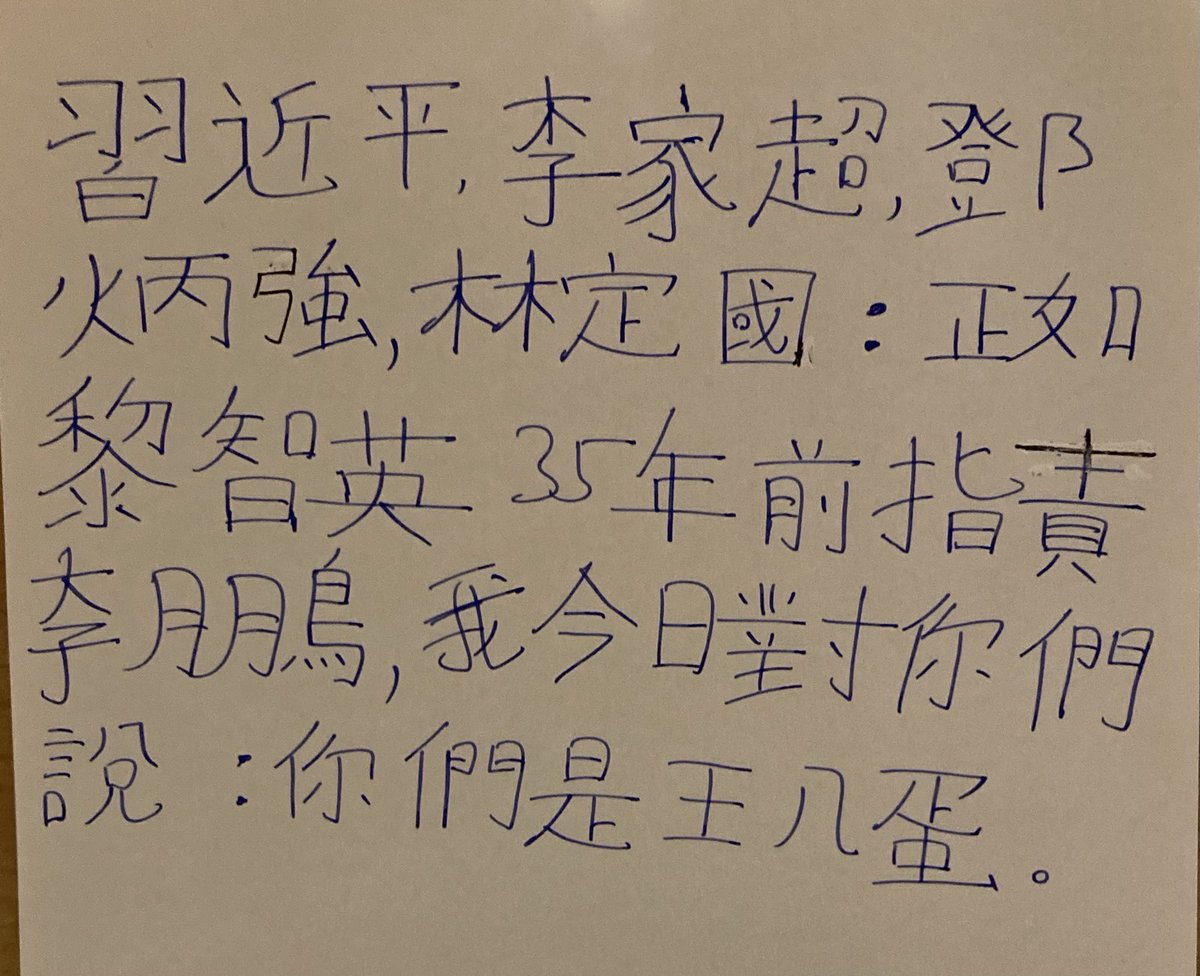 習近平,李家超,鄧
炳強,林定國:正如
黎智英35年前指責
李鵬,我今日對你們
說:你們是王八蛋。